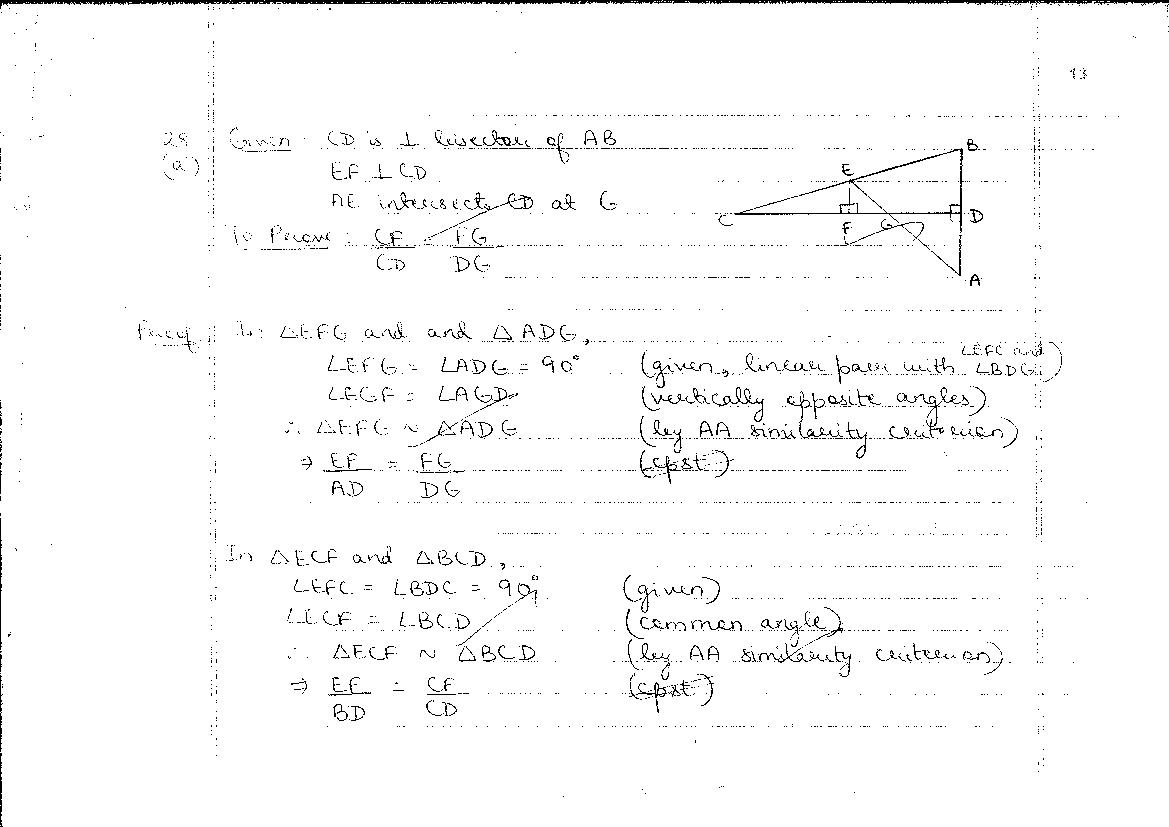 13
29
(a)
Given : CD is ⊥ bisector of AB
EF ⊥ CD
AE intersects CD at G
To Prove : CF/CD = FG/DG
B
E
C
D
F
G
A
Proof : In ΔEFG and and ΔADG,
∠EFG = ∠ADG = 90° (given, linear pair with ∠EFC and ∠BDG)
∠EGF = ∠AGD (vertically opposite angles)
∴ ΔEFG ~ ΔADG (by AA similarity criterion)
⇒ EF/AD = FG/DG (cpst)
In ΔECF and ΔBCD,
∠EFC = ∠BDC = 90° (given)
∠ECF = ∠BCD (common angle)
∴ ΔECF ~ ΔBCD (by AA similarity criterion)
⇒ EF/BD = CF/CD (cpst)